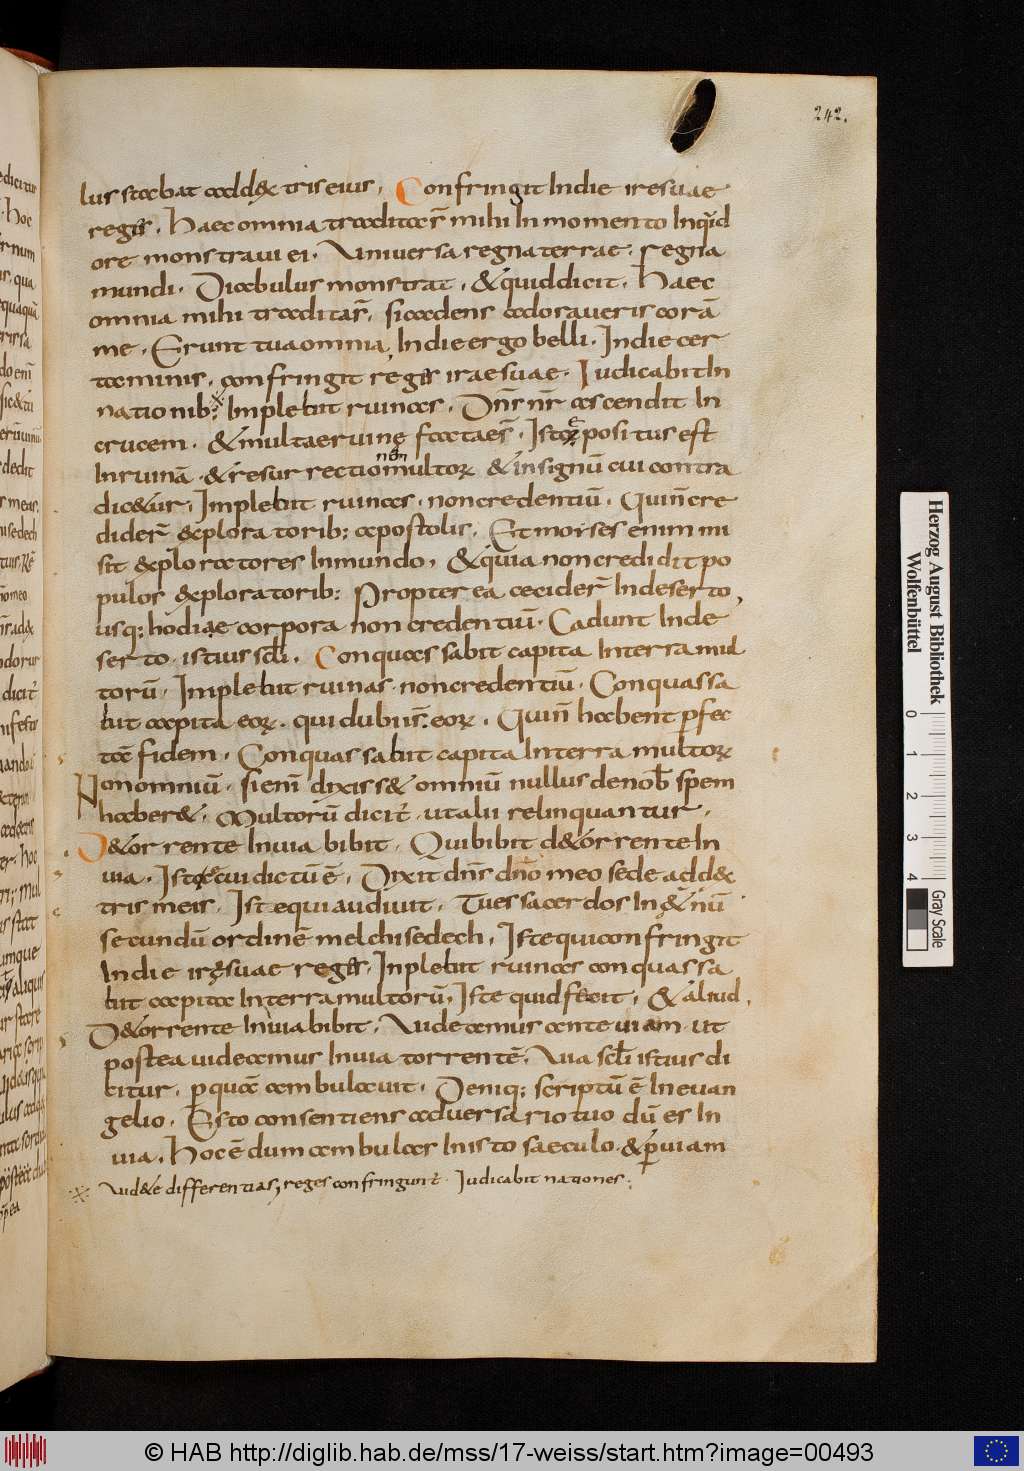 242.
lus stabat addextris eius. Confringit In die ire suae
regꝭ. Haec omnia tradita sr̄ mihi In momento
ore monstraui ei. Uniuersa regna terrae. regna
mundi. Diabulus monstrat, & quid dicit. Haec
omnia mihi tradita sr̄. si cadens adoraueris corā
me. Erunt tua omnia, In die ergo belli. In die cer
taminis. confringit regꝭ irae suae. Iudicabit In
nationib; Implebit ruinas. Dn̄s nr̄ ascendit In
crucem. & multae ruinę factae sr̄. Iste positus est
In ruinā. & resurrectionē multoꝝ & in signū cui contra
dic&ur. Implebit ruinas. non credentiū. Qui n̄ cre
dider̄ exploratorib; apostolis. Et moises enim mi
sit exploratores In mundo. & quia non credidit po
pulus exploratorib; Propterea cecider̄ In deserto
usq; hodiae corpora non credentiū. Cadunt In de
serto istius scl̄i. Conquassabit capita In terra mul
torū. Implebit ruinas. non credentiū. Conquassa
bit capita eoꝝ. qui dubii sr̄ eoꝝ. Qui n̄ habent ꝑfec
tā fidem. Conquassabit capita In terra multoꝝ
Non omniū. si enī dixiss& omniū nullus de nob̄ spem
haber&. Multorū dicit̄. ut alii relinquantur.
D&orrente In uia bibit. Qui bibit d&orrente In
uia. Iste cui dictū ē. Dixit dn̄s dn̄o meo sede ad d&
tris meis. Iste qui audiuit. Tu es sacerdos In &̄nū
secundū ordinē melchisedech. Iste qui confringit
In die irę suae regꝭ. Inplebit ruinas conquassa
bit capita In terra multorū. Iste quid fecit. & aliud.
D&orrente In uia bibit. Uideamus ante uiam. ut
postea uideamus In uia torrentē. Uia scl̄i istius di
citur. ꝑ quā ambulauit. Deniq; scriptū ē In euan
gelio. Esto consentiens aduersario tuo dū es In
uia. Hoc ē dum ambulas In isto saeculo. & ꝑ uiam
Uid&e differentias, reges confringunt̄. Iudicabit nationes.
Herzog August Bibliothek
Wolfenbüttel
0 1 2 3 4
Gray Scale
© HAB http://diglib.hab.de/mss/17-weiss/start.htm?image=00493